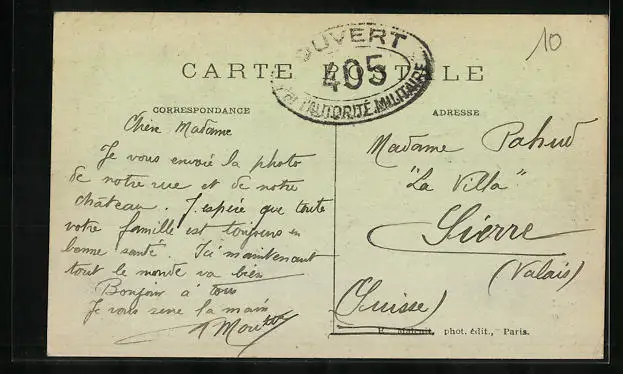 OUVERT
405
PAR L'AUTORITÉ MILITAIRE
10
CARTE POSTALE
CORRESPONDANCE
Chère Madame
Je vous envoie la photo
de notre rue et de notre
château. J'espère que toute
votre famille est toujours en
bonne santé. Ici maintenant
tout le monde va bien
Bonjour à tous
Je vous serre la main
ADRESSE
Madame Pahud
"La Villa"
Sierre
(Valais)
(Suisse)
phot. édit., Paris.